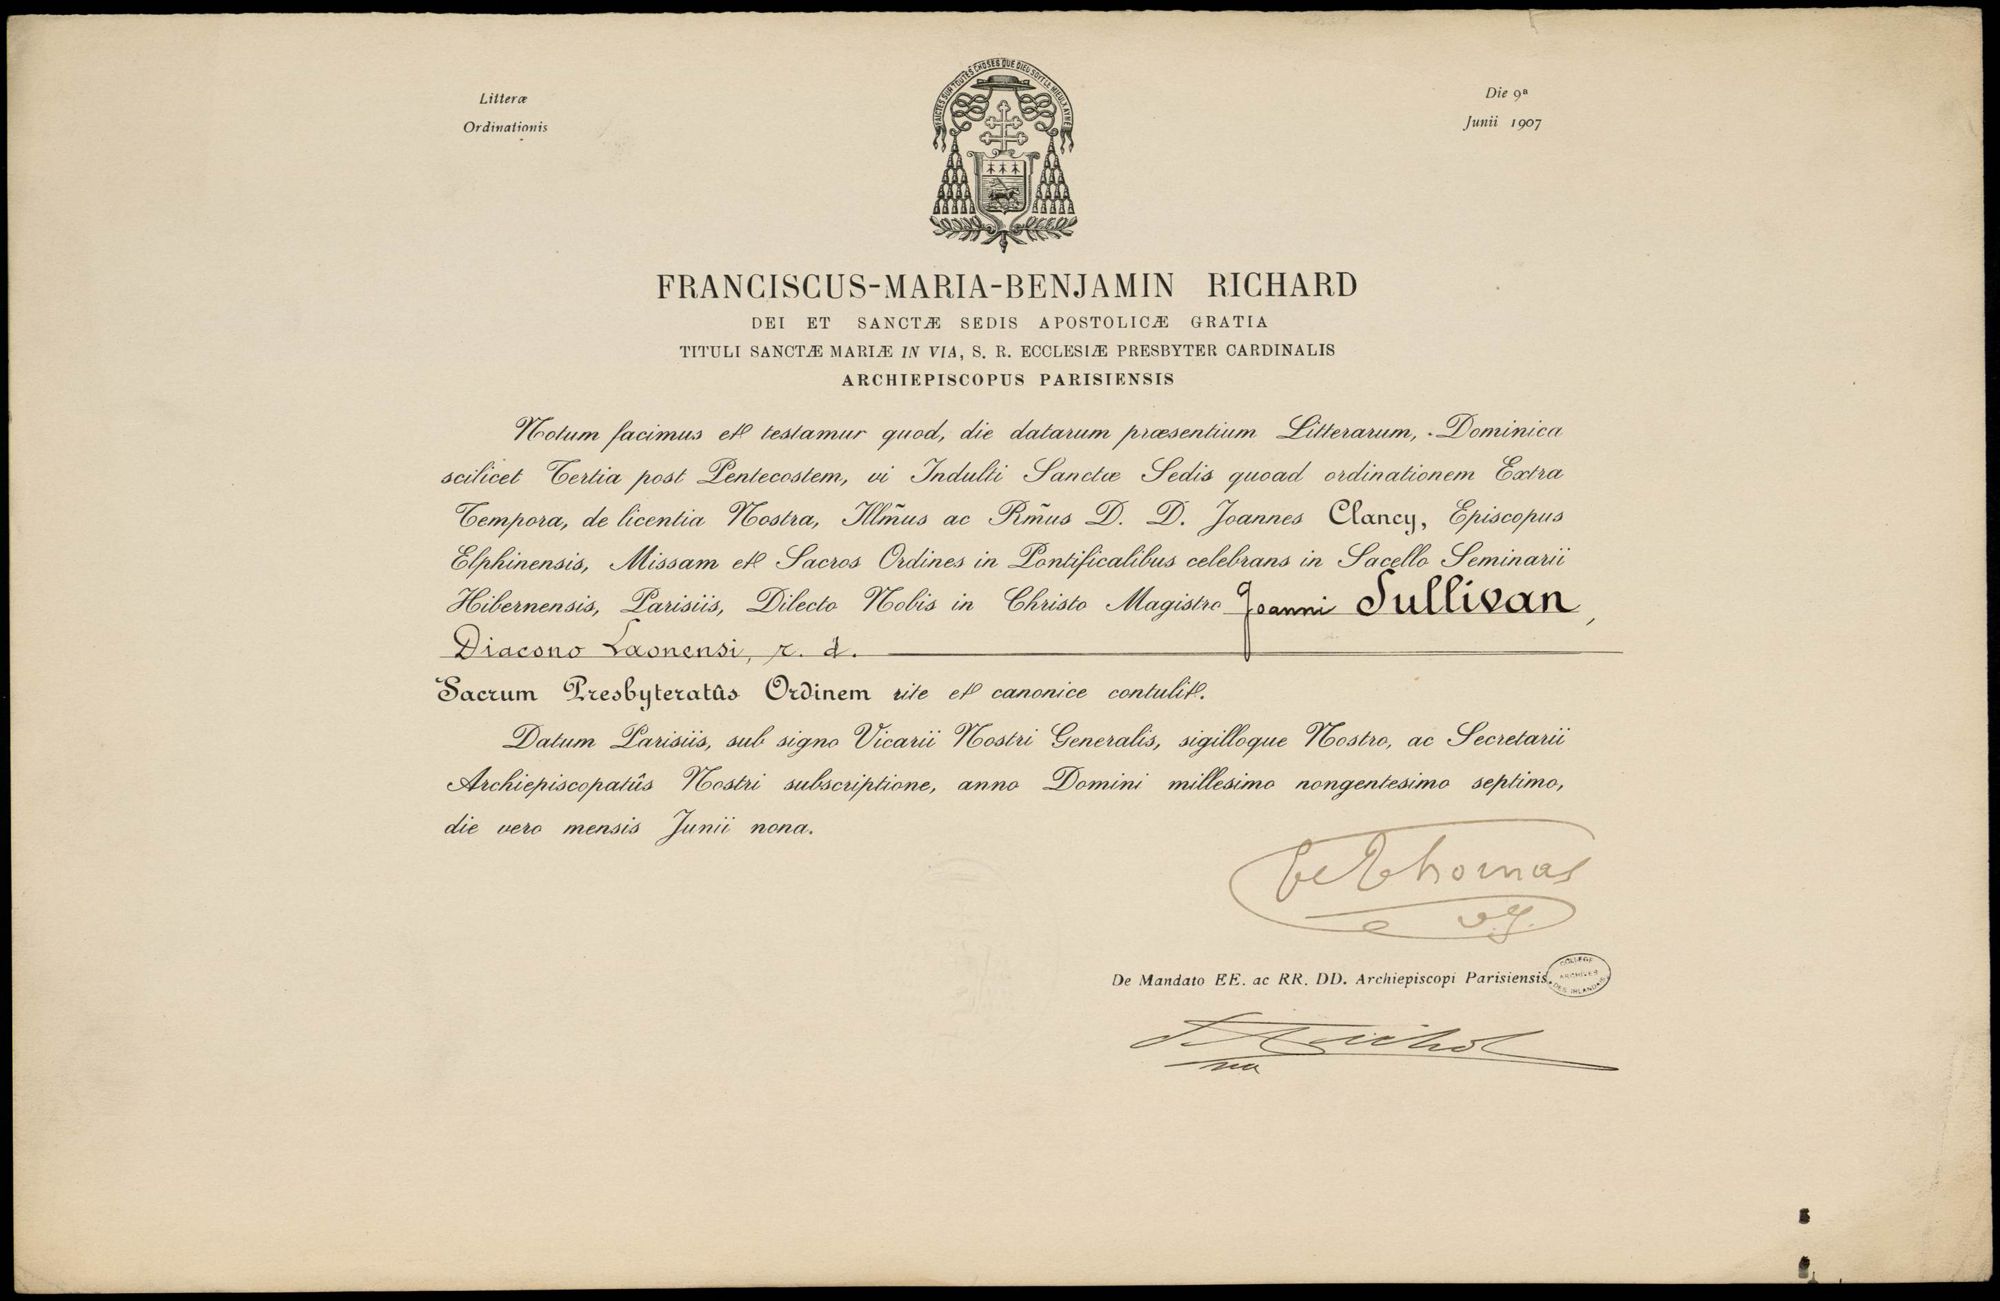 Litteræ
Ordinationis
Die 9ª
Junii 1907
FAICTES SUR TOUTES CHOSES QUE DIEU SOYT LE MIEULX AYMÉ
FRANCISCUS-MARIA-BENJAMIN RICHARD
DEI ET SANCTÆ SEDIS APOSTOLICÆ GRATIA
TITULI SANCTÆ MARIÆ IN VIA, S. R. ECCLESIÆ PRESBYTER CARDINALIS
ARCHIEPISCOPUS PARISIENSIS
Notum facimus et testamur quod, die datarum præsentium Litterarum, Dominica
scilicet Tertia post Pentecostem, vi Indulti Sanctæ Sedis quoad ordinationem Extra
Tempora, de licentia Nostra, Illm̃us ac Rm̃us D. D. Joannes Clancy, Episcopus
Elphinensis, Missam et Sacros Ordines in Pontificalibus celebrans in Sacello Seminarii
Hibernensis, Parisiis, Dilecto Nobis in Christo Magistro Joanni Sullivan,
Diacono Laonensi, r. d.
Sacrum Presbyteratûs Ordinem rite et canonice contulit.
Datum Parisiis, sub signo Vicarii Nostri Generalis, sigilloque Nostro, ac Secretarii
Archiepiscopatûs Nostri subscriptione, anno Domini millesimo nongentesimo septimo,
die vero mensis Junii nona.
Thomas
v.g.
De Mandato EE. ac RR. DD. Archiepiscopi Parisiensis.
COLLEGE
ARCHIVES
DES IRLANDAIS